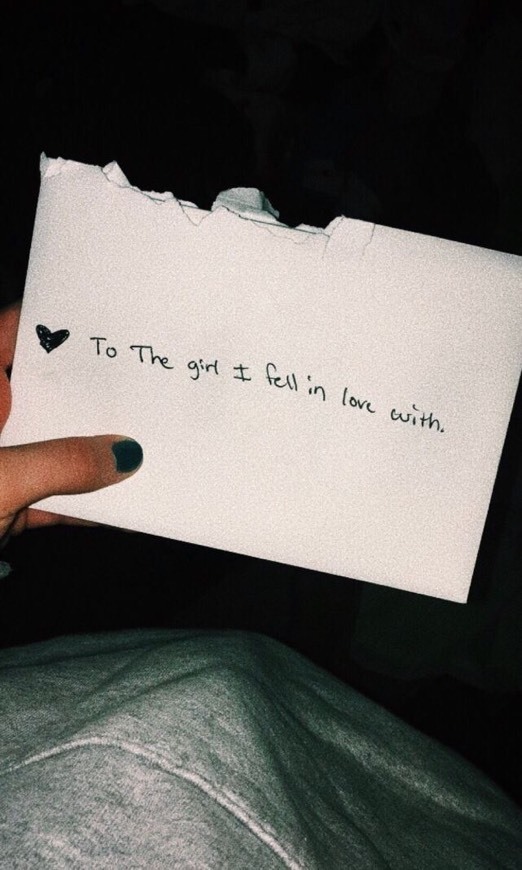 ♥ To The girl I fell in love with.